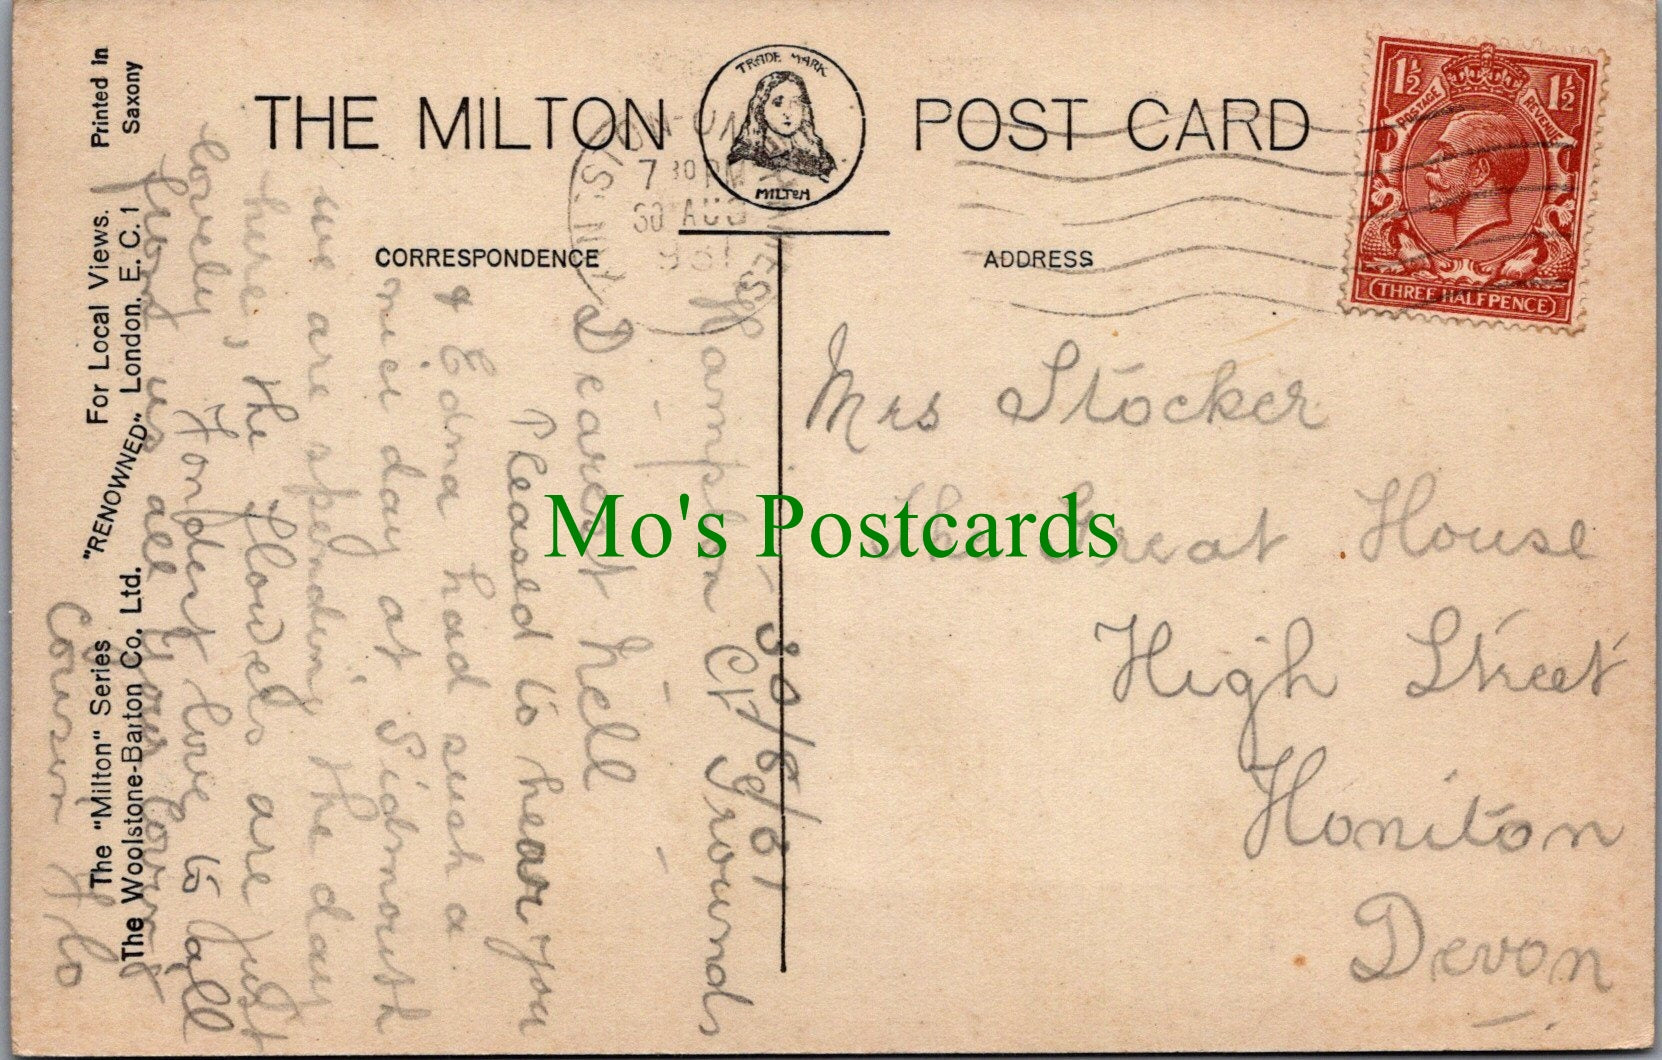 THE MILTON POST CARD
TRADE MARK
MILTON
CORRESPONDENCE
ADDRESS
1½ 1½
POSTAGE REVENUE
THREE HALFPENCE
7 30 PM
30 AUG
1931
Printed in
Saxony
For Local Views.
"RENOWNED" London. E. C. 1
The "Milton" Series
The Woolstone-Barton Co. Ltd.
Hampton Ct Grounds
30/8/31
Dearest Nell
Pleased to hear you
& Edna had such a
nice day at Sidmouth
we are spending the day
here, the flowers are just
lovely Fondest love to all
from us all your loving
Cousin Flo
Mrs Stocker
The Great House
High Street
Honiton
Devon
Mo's Postcards